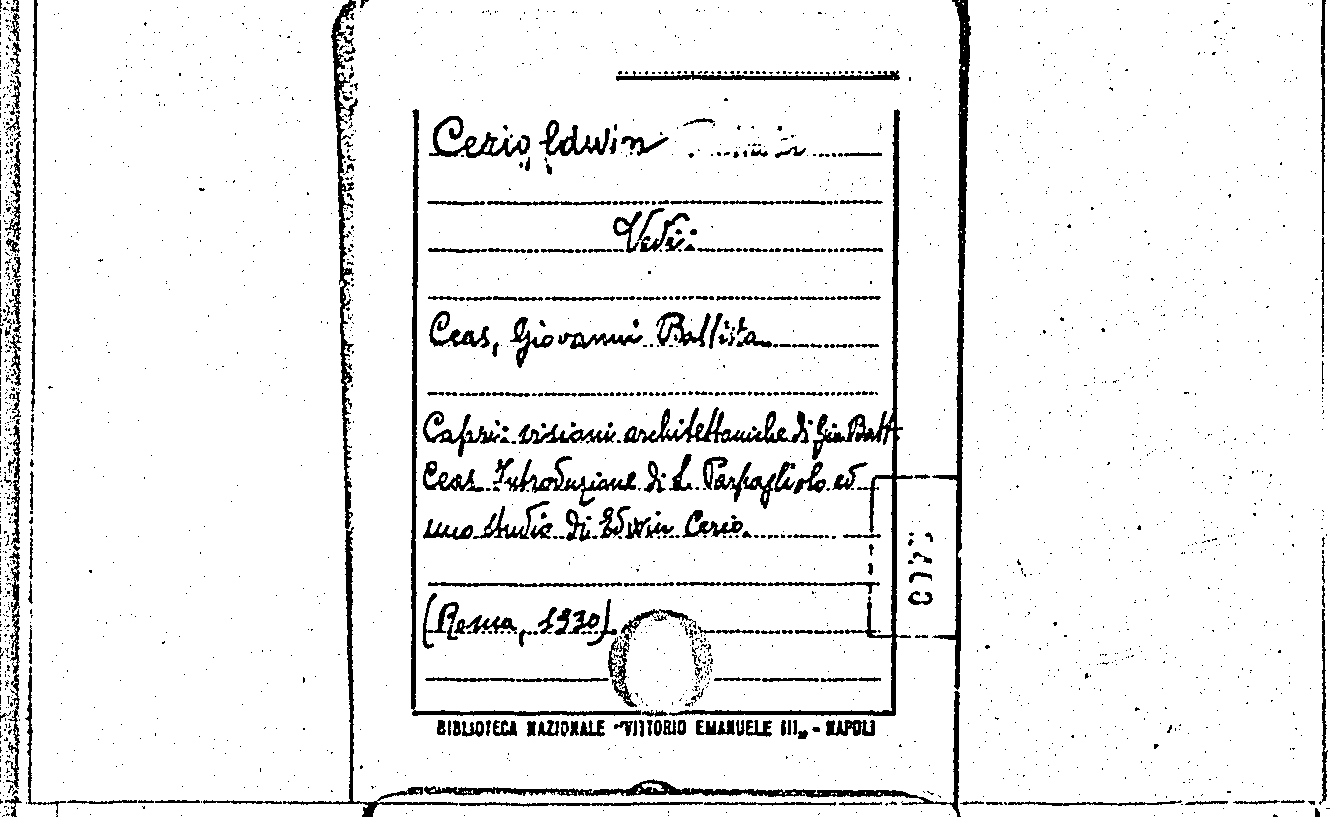 Cerio, Edwin
Vedi:
Ceas, Giovanni Battista
Capri: visioni architettoniche di Gio. Batt.
Ceas. Introduzione di L. Parpagliolo ed
uno studio di Edwin Cerio.
(Roma, 1930)
BIBLIOTECA NAZIONALE "VITTORIO EMANUELE III„ - NAPOLI